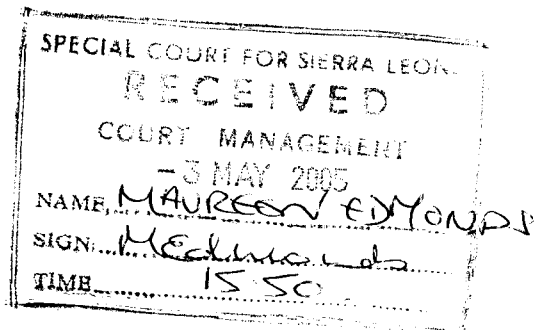 SPECIAL COURT FOR SIERRA LEON
RECEIVED
COURT MANAGEMENT
- 3 MAY 2005
NAME MAUREEN EDMONDS
SIGN MEdmonds
TIME 15.50